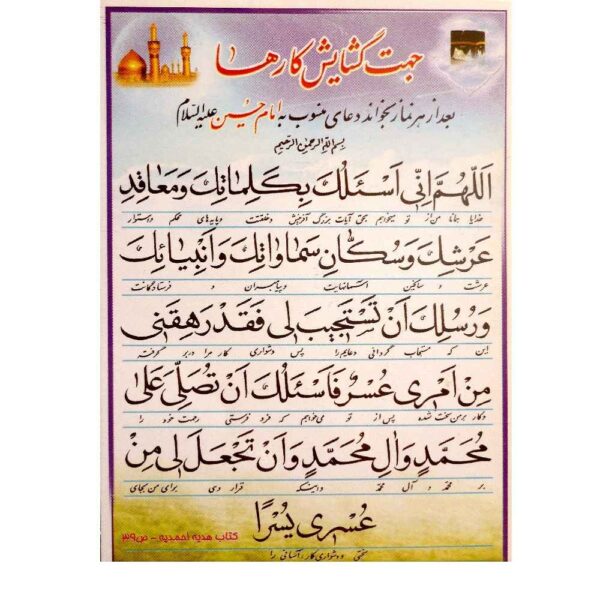 جهت گشایش کارها
بعد از هر نماز بخواند دعای منسوب به امام حسین علیه السلام
بسم الله الرحمن الرحیم
اَللّٰهُمَّ اِنّی اَسْئَلُكَ بِكَلِماتِكَ وَمَعاقِدِ
خدایا همانا من از تو میخواهم بحق آیات بزرگ آفرینش و خلقتت و پایه‌های محکم و استوار
عَرْشِكَ وَسُكّٰانِ سَمٰاوٰاتِكَ وَاَنْبِیٰائِكَ
عرشت و ساکنین آسمانهایت و پیامبران و فرستادگانت
وَرُسُلِكَ اَنْ تَسْتَجیبَ لی فَقَدْ رَهِقَنی
این که مستجاب گردانی دعایم را پس دشواری کار مرا در بر گرفته
مِنْ اَمْری عُسْرٌ فَاَسْئَلُكَ اَنْ تُصَلِّیَ عَلیٰ
و کار بر من سخت شده پس از تو می‌خواهم که فرو فرستی رحمت خود را
مُحَمَّدٍ وَاٰلِ مُحَمَّدٍ وَاَنْ تَجْعَلَ لی مِنْ
بر محمد و آل محمد و اینکه قرار دهی برای من بجای
عُسْری یُسْرًا
سختی و دشواری کار، آسانی را
کتاب هدیه احمدیه - ص۳۹